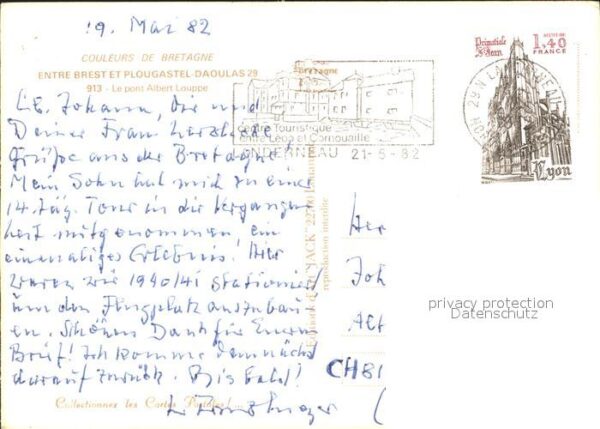 19. Mai 82
COULEURS DE BRETAGNE
ENTRE BREST ET PLOUGASTEL-DAOULAS 29
913 - Le pont Albert Louppe
Bretagne
Centre Touristique
entre Léon et Cornouaille
LANDERNEAU 21-5-82
Primatiale
St Jean
1,40
FRANCE
Lyon
Johann, Dir und
Deiner Frau herzliche
Grüße aus der Bretagne!
Mein Sohn hat mich zu einer
14 täg. Tour in die Vergangen-
heit mitgenommen, ein
einmaliges Erlebnis! Hier
waren wir 1940/41 stationiert
um den Flugplatz auszubau-
en. Schönen Dank für Euren
Brief! Ich komme demnächst
darauf zurück. Bis bald!
Her
Joh
Alt
CH 81
"JACK"
reproduction interdite
Collectionnez les Cartes Postales
privacy protection
Datenschutz